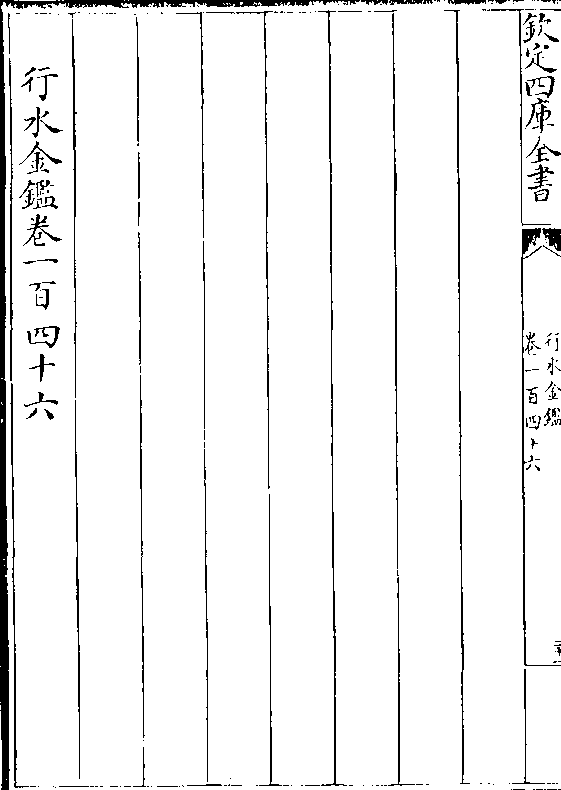 欽定四庫全書
行水金鑑
卷一百四十六
行水金鑑卷一百四十六